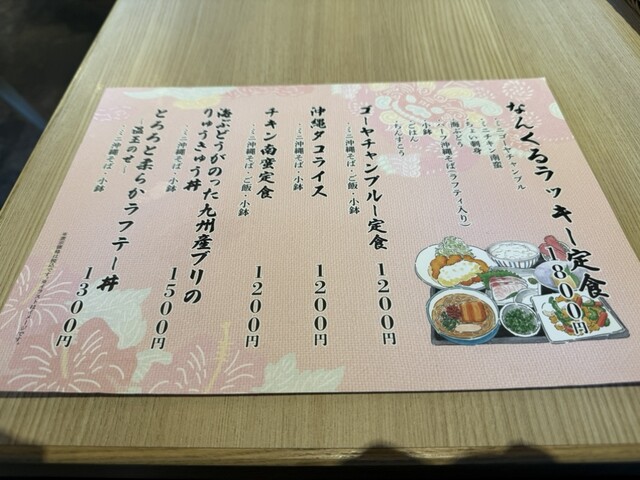 なんくるラッキー定食
1800円
・ミニゴーヤチャンプル
・ミニチキン南蛮
・ちょい刺身
・海ぶどう
・ハーフ沖縄そば(ラフティ入り)
・小鉢
・ごはん
・ちんすこう
ゴーヤチャンプルー定食 1200円
・ミニ沖縄そば・ご飯・小鉢
沖縄タコライス 1200円
・ミニ沖縄そば・小鉢
チキン南蛮定食 1200円
・ミニ沖縄そば・ご飯・小鉢
海ぶどうがのった九州産ブリの
りゅうきゅう丼 1500円
・ミニ沖縄そば・小鉢
とろろと柔らかラフテー丼 1300円
~温玉のせ~
・ミニ沖縄そば・小鉢